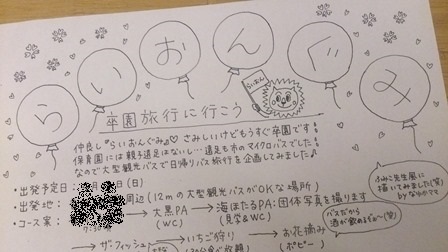 らいおんぐみ
らいおん
卒園旅行に行こう
仲良し『らいおんぐみ』♡ さみしいけどもうすぐ卒園です
保育園には親子遠足はないし…遠足も市のマイクロバスでした
なので大型観光バスで日帰りバス旅行を企画してみました!
・出発予定日: 月 日(日)
・出発地: 周辺(12mの大型観光バスがOKな場所)
・コース案: → 大黒PA → 海ほたるPA:団体写真を撮ります
(WC) (見学&WC)
→ ザ・フィッシュ → いちご狩り → お花摘み
(ポピー)
ふみこ先生風に
描いてみました(笑)
byなりゆママ
バスだから
酒が飲めるぞぉ〜(笑)